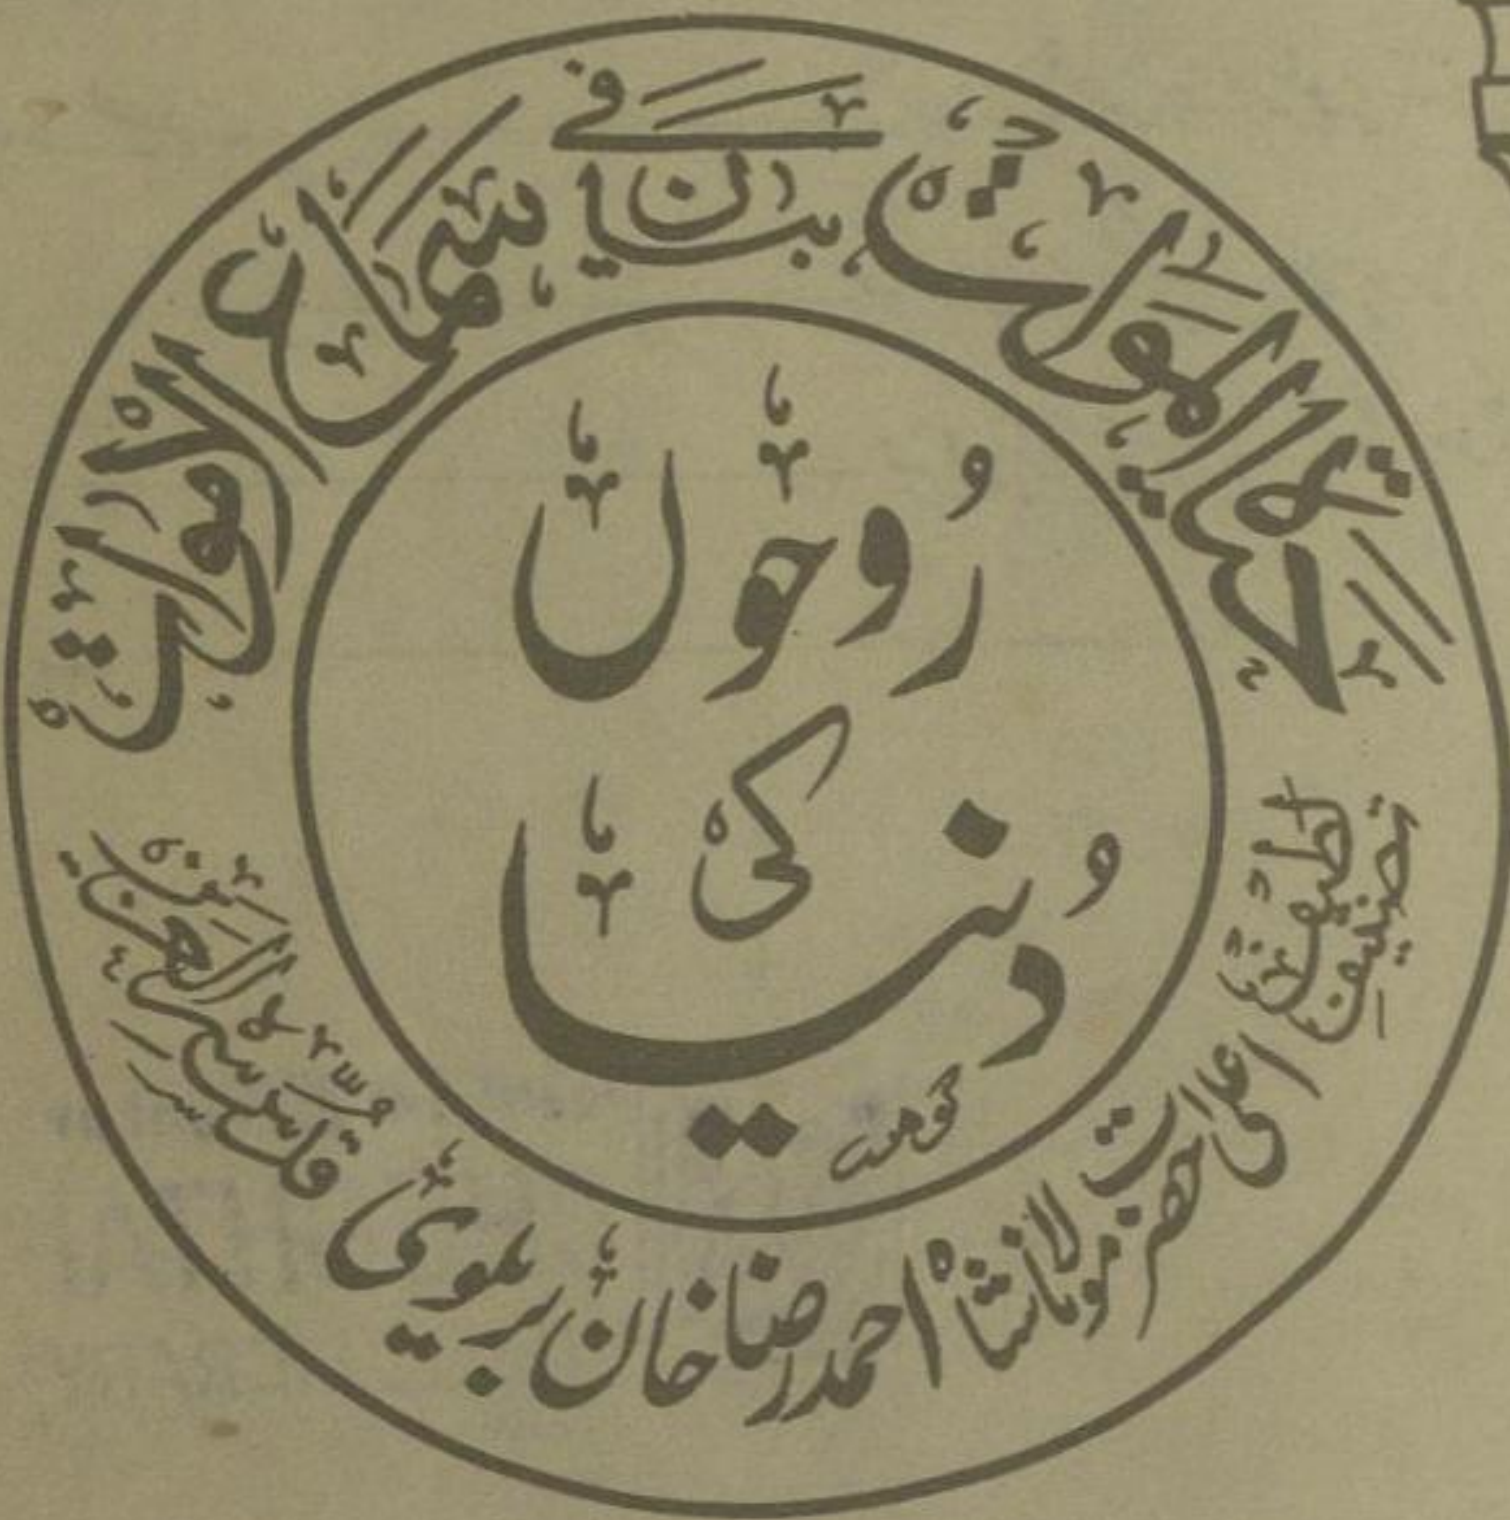 حیاۃ الموات فی بیان سماع الاموات
رُوحوں
کی
دُنیا
گوہر
تصنیفِ لطیف
اعلیٰ حضرت مولانا شاہ احمد رضا خان بریلوی
قدس سرہ العزیز